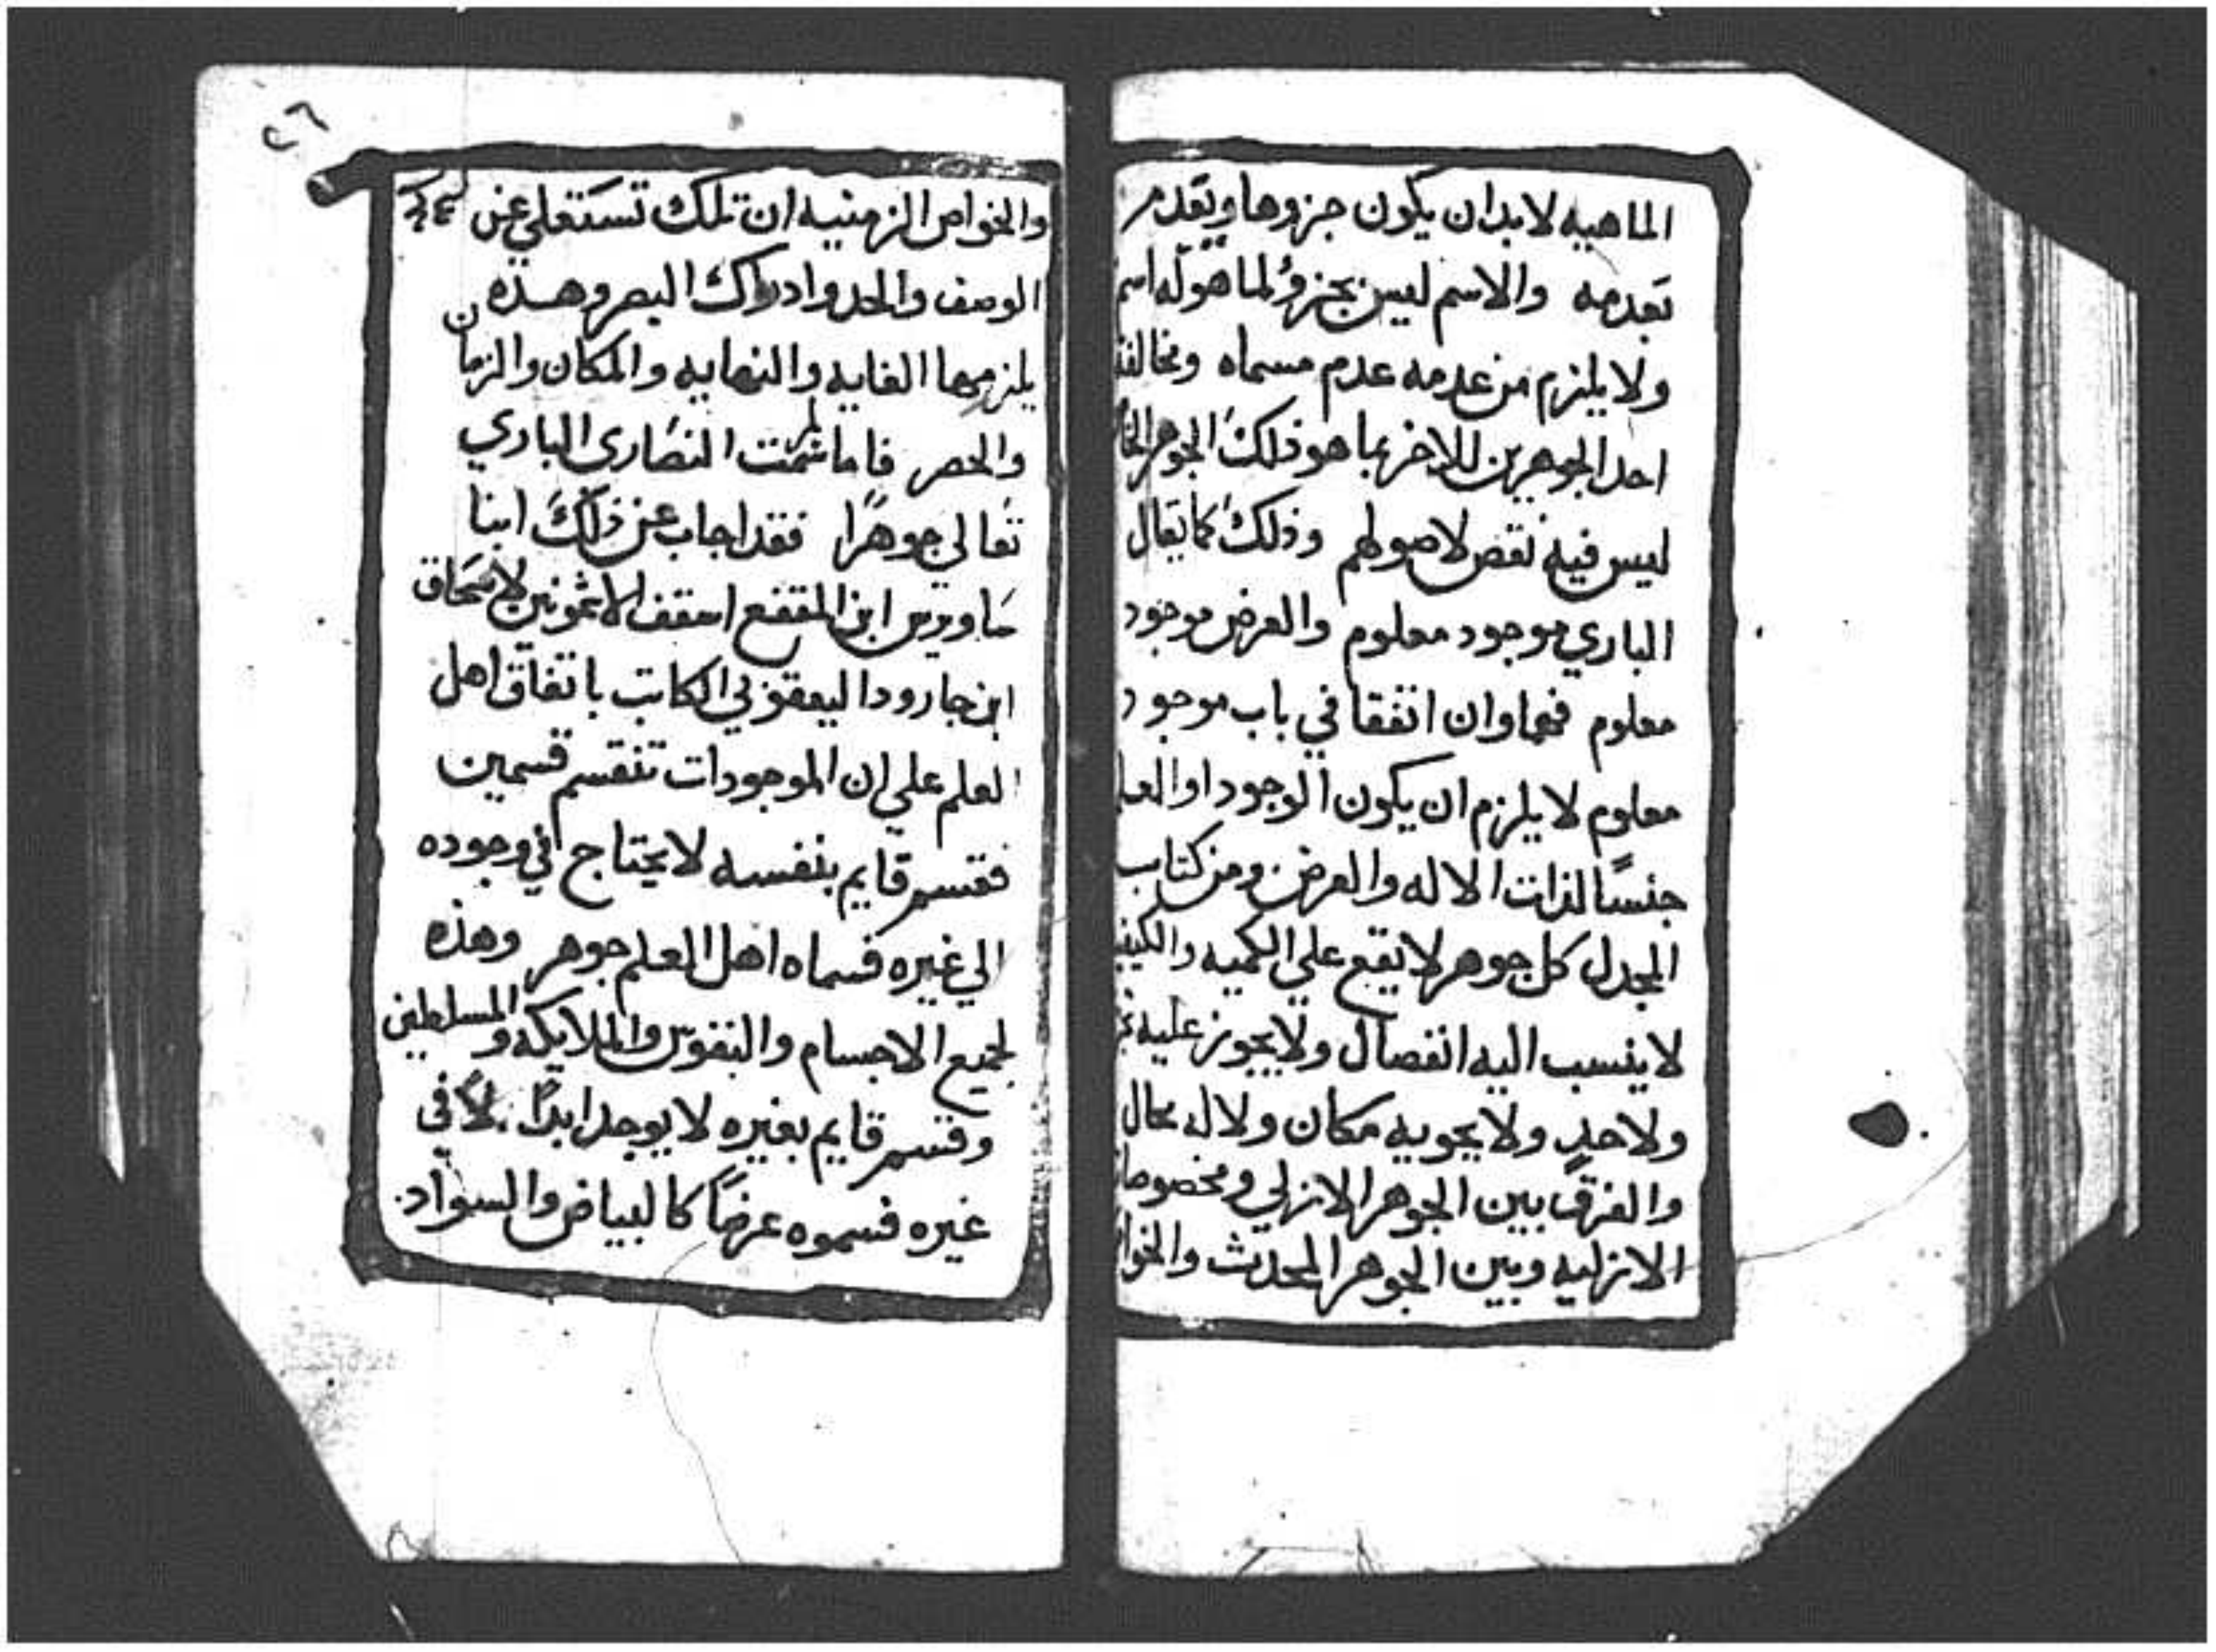 الماهيه لابد ان يكون جزوها ويقدم
تقدمه والاسم ليس بجزؤ لما هو له اسم
ولا يلزم من عدمه عدم مسماه
احد الجوهرين للاخر بما هو ذلك الجوهر
ليس فيه نقص لاصولهم وذلك كما يقال
الباري موجود معلوم والعرض موجود
معلوم فهما وان اتفقا في باب موجود
معلوم لا يلزم ان يكون الوجود او
جنسًا لذات الاله والعرض ومن كتاب
المجدل كل جوهر لا يقع علي الكميه
لا ينسب اليه انفصال ولا يجوز عليه
ولا حدٍ ولا يحويه مكان ولا له بحال
والفرق بين الجوهر الازلي
الازليه وبين الجوهر المحدث
٢٦
والخواص الزمنيه ان تلك تستعلي عن
الوصف والحد وادراك البصر وهذه
يلزمها الغايه والنهايه والمكان والزمان
والحصر فاما لم سمت النصارى الباري
تعالي جوهرًا فقد اجاب عن ذلك انبا
ساويرس ابن المقفع اسقف الاشمونين لاسحاق
ابن جارود اليعقوبي الكاتب باتفاق اهل
العلم علي ان الموجودات تنقسم قسمين
فقسم قايم بنفسه لا يحتاج في وجوده
الي غيره فسماه اهل العلم جوهر وهذه
لجميع الاجسام والنفوس والملايكه والمسلطين
وقسم قايم بغيره لا يوجد ابدًا الا في
غيره فسموه عرضًا كالبياض والسواد.